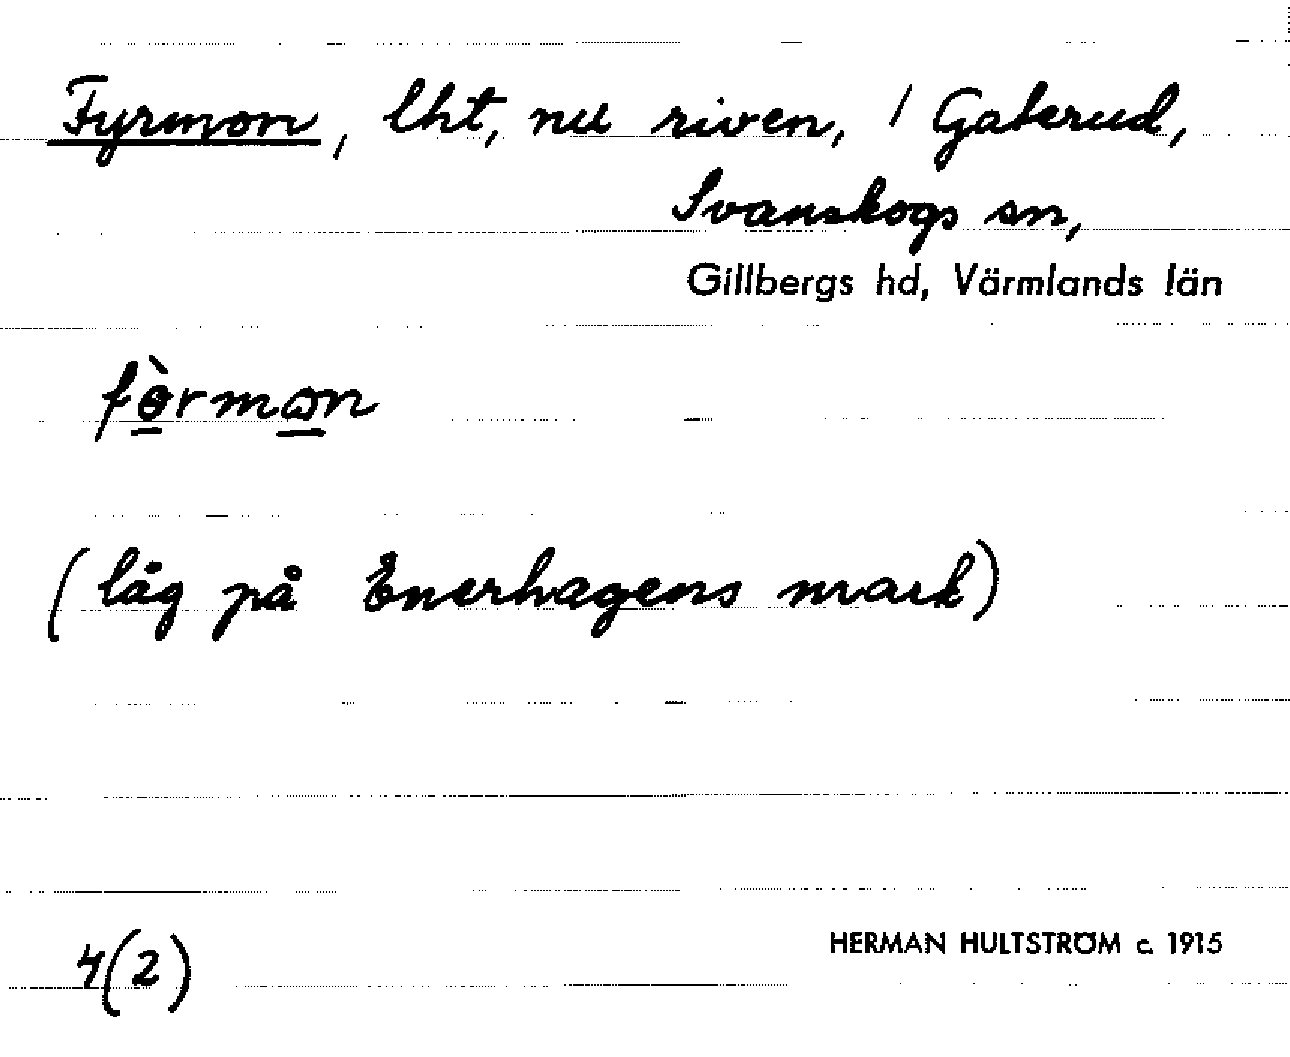 Fyrmon, lht, nu riven, / Gaterud,
Svanskogs sn,
Gillbergs hd, Värmlands län
fɵ̀rmɷn
(låg på Enerhagens mark)
4(2)
HERMAN HULTSTRÖM c. 1915